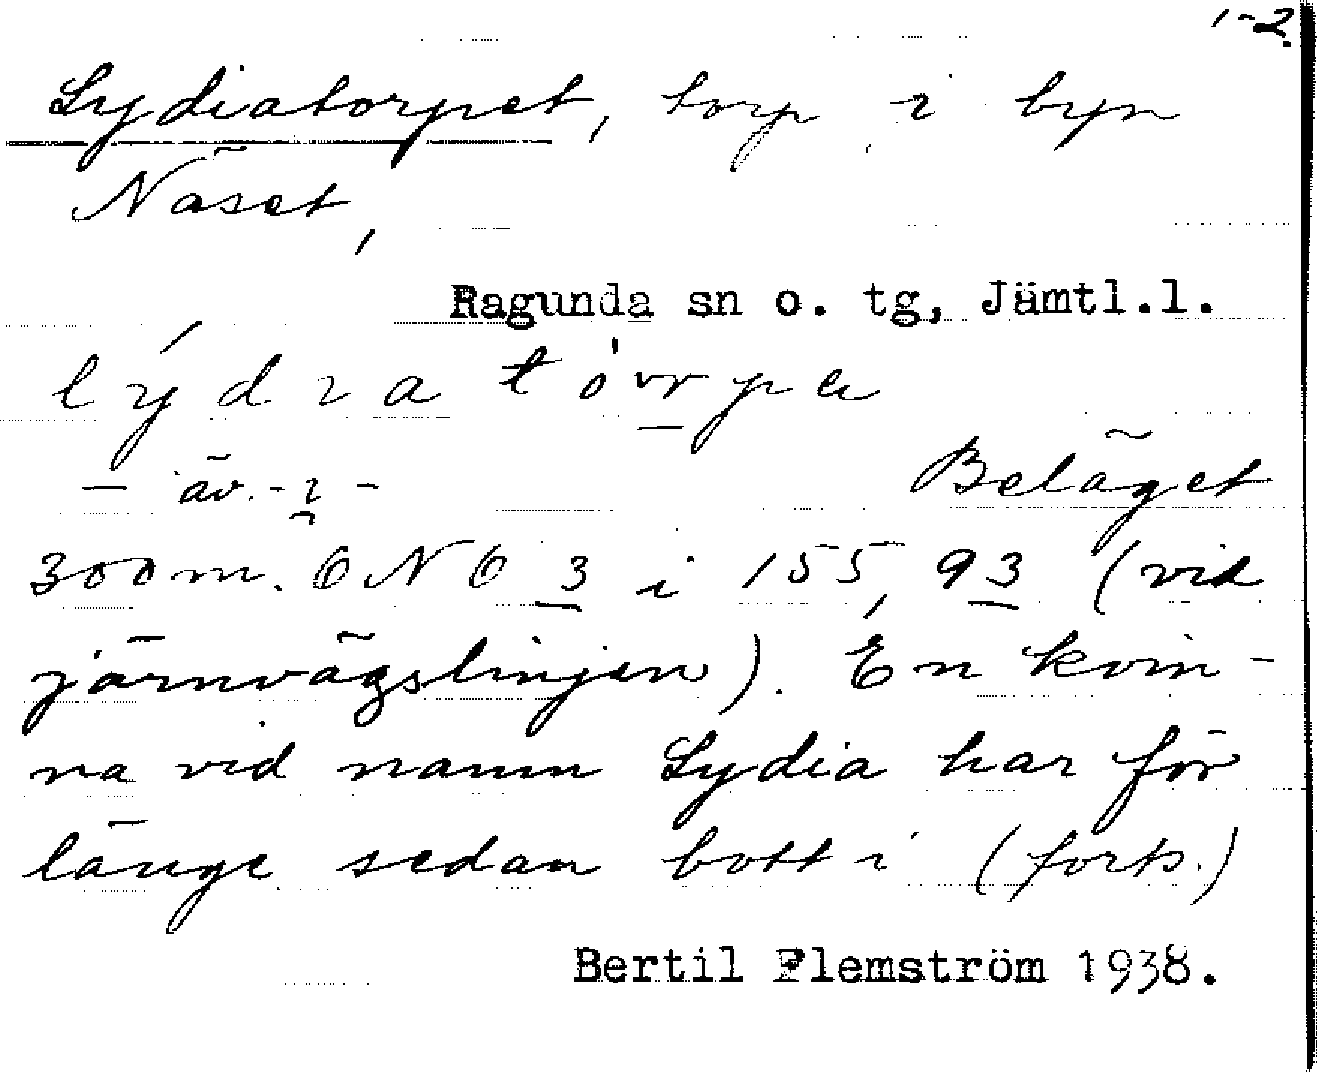 1-2.
Lydiatorpet, torp i byn
Näset,
Ragunda sn o. tg, Jämtl.l.
lýdɩa tórrpa
— äv. -ɩ̯-
Beläget
300 m. ONO 3 i 155, 93 (vid
järnvägslinjen). En kvin-
na vid namn Lydia har för
länge sedan bott i (forts.)
Bertil Flemström 1938.